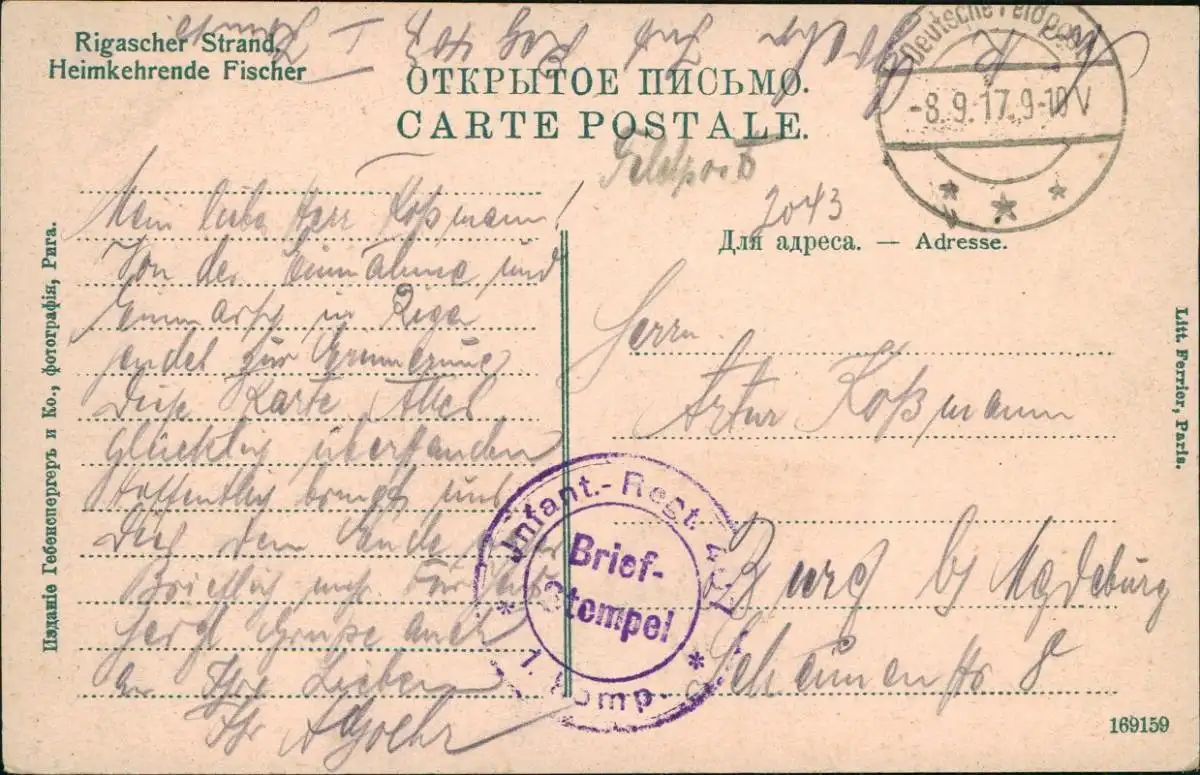 Rigascher Strand,
Heimkehrende Fischer
ОТКРЫТОЕ ПИСЬМО.
CARTE POSTALE.
Deutsche Feldpost
-8.9.17. 9-10 V
Feldpost
2043
Для адреса. — Adresse.
Mein lieber Herr Koßmann!
Von der Einnahme und
Einmarsch in Riga
sendet zur Erinnerung
diese Karte. Alles
glücklich überstanden
Hoffentlich bringt uns
dies dem Ende näher
Brieflich mehr. Für heute
herzl Grüße auch
an Ihre Lieben
Ihr
Herrn
Artur Koßmann
Burg b/ Magdeburg
Scheunenstr 8
Infant.-Regt.
Brief-
Stempel
1. Komp.
Изданіе Гебенспергеръ и Ко., фотографія, Рига.
Litt. Ferrier, Paris.
169159